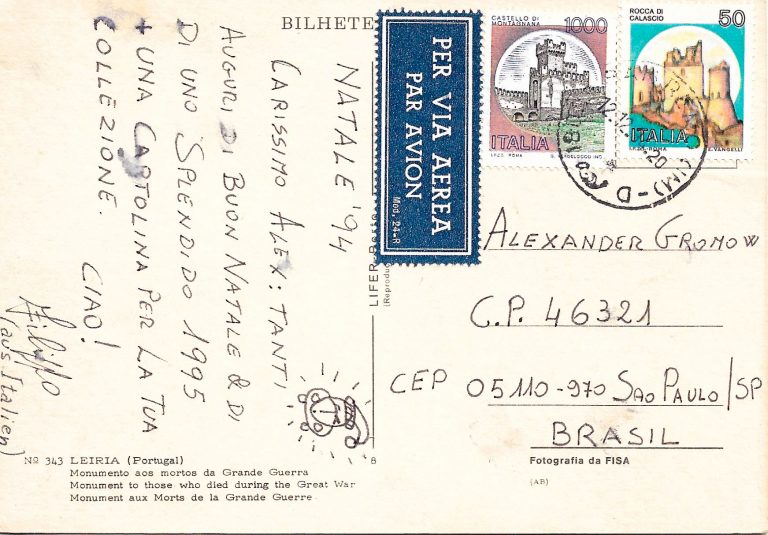 BILHETE
NATALE '94
CARISSIMO ALEX: TANTI
AUGURI DI BUON NATALE & DI
DI UNO SPLENDIDO 1995
+ UNA CARTOLINA PER LA TUA
COLLEZIONE. CIAO!
Filippo
(aus Italien)
PER VIA AEREA
PAR AVION
Mod. 24-R
CASTELLO DI
MONTAGNANA
1000
ITALIA
I.P.Z.S. ROMA
ROCCA DI
CALASCIO
50
ITALIA
E. VANGELLI
ALEXANDER GROMOW
C.P. 46321
CEP 05110-970 SAO PAULO/SP
BRASIL
Fotografia da FISA
(AB)
LIFER
(Reproduc
8
Nº 343 LEIRIA (Portugal)
Monumento aos mortos da Grande Guerra
Monument to those who died during the Great War
Monument aux Morts de la Grande Guerre